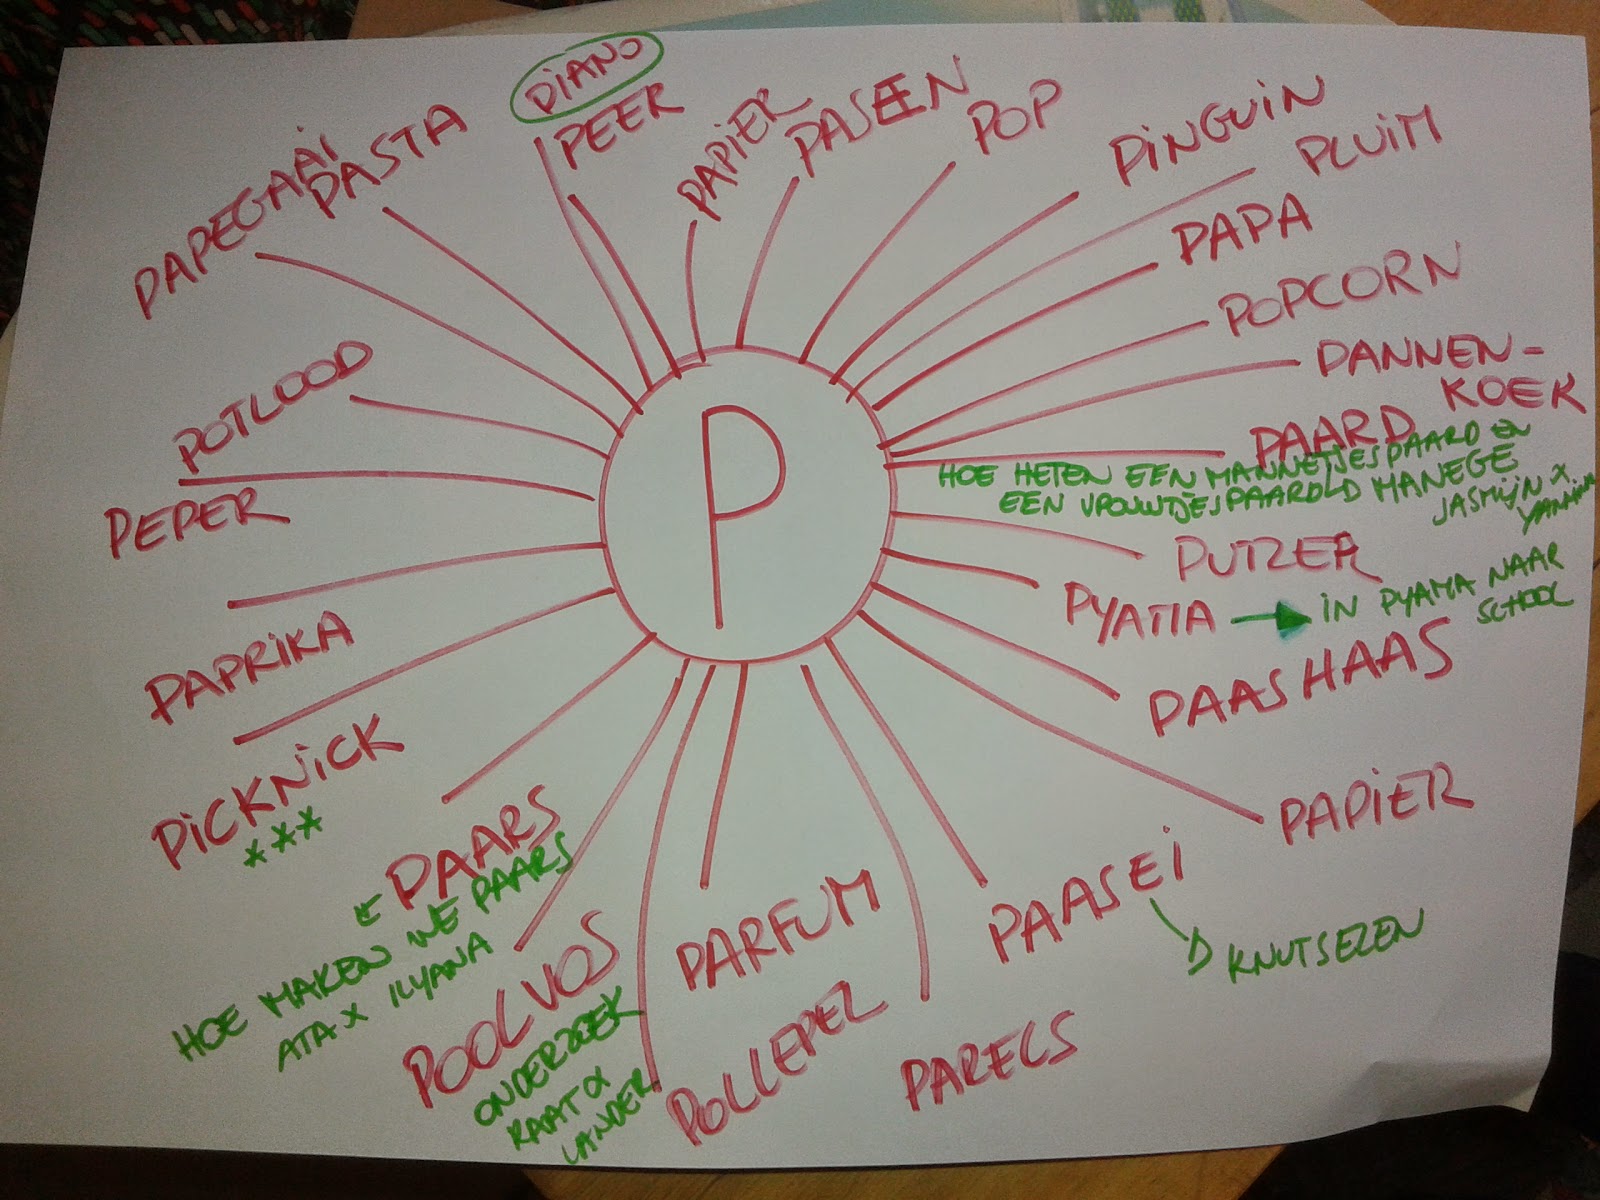 PIANO
PEER
PAPIER
PASEN
POP
PINGUIN
PLUIM
PAPA
POPCORN
PANNEN-
KOEK
PAARD
HOE HETEN EEN MANNETJESPAARD EN
EEN VROUWTJESPAARD MANEGE
JASMIJN X
PUTZER
PYAMA
IN PYAMA NAAR
SCHOOL
PAASHAAS
PAPIER
PAASEI
KNUTSELEN
PARELS
PARFUM
POLLEPEL
POOLVOS
ONDERZOEK
LANDER
PAARS
HOE MAKEN WE PAARS
ATA X ILYANA
PICKNICK
***
PAPRIKA
PEPER
POTLOOD
PAPEGAAI
PASTA
P